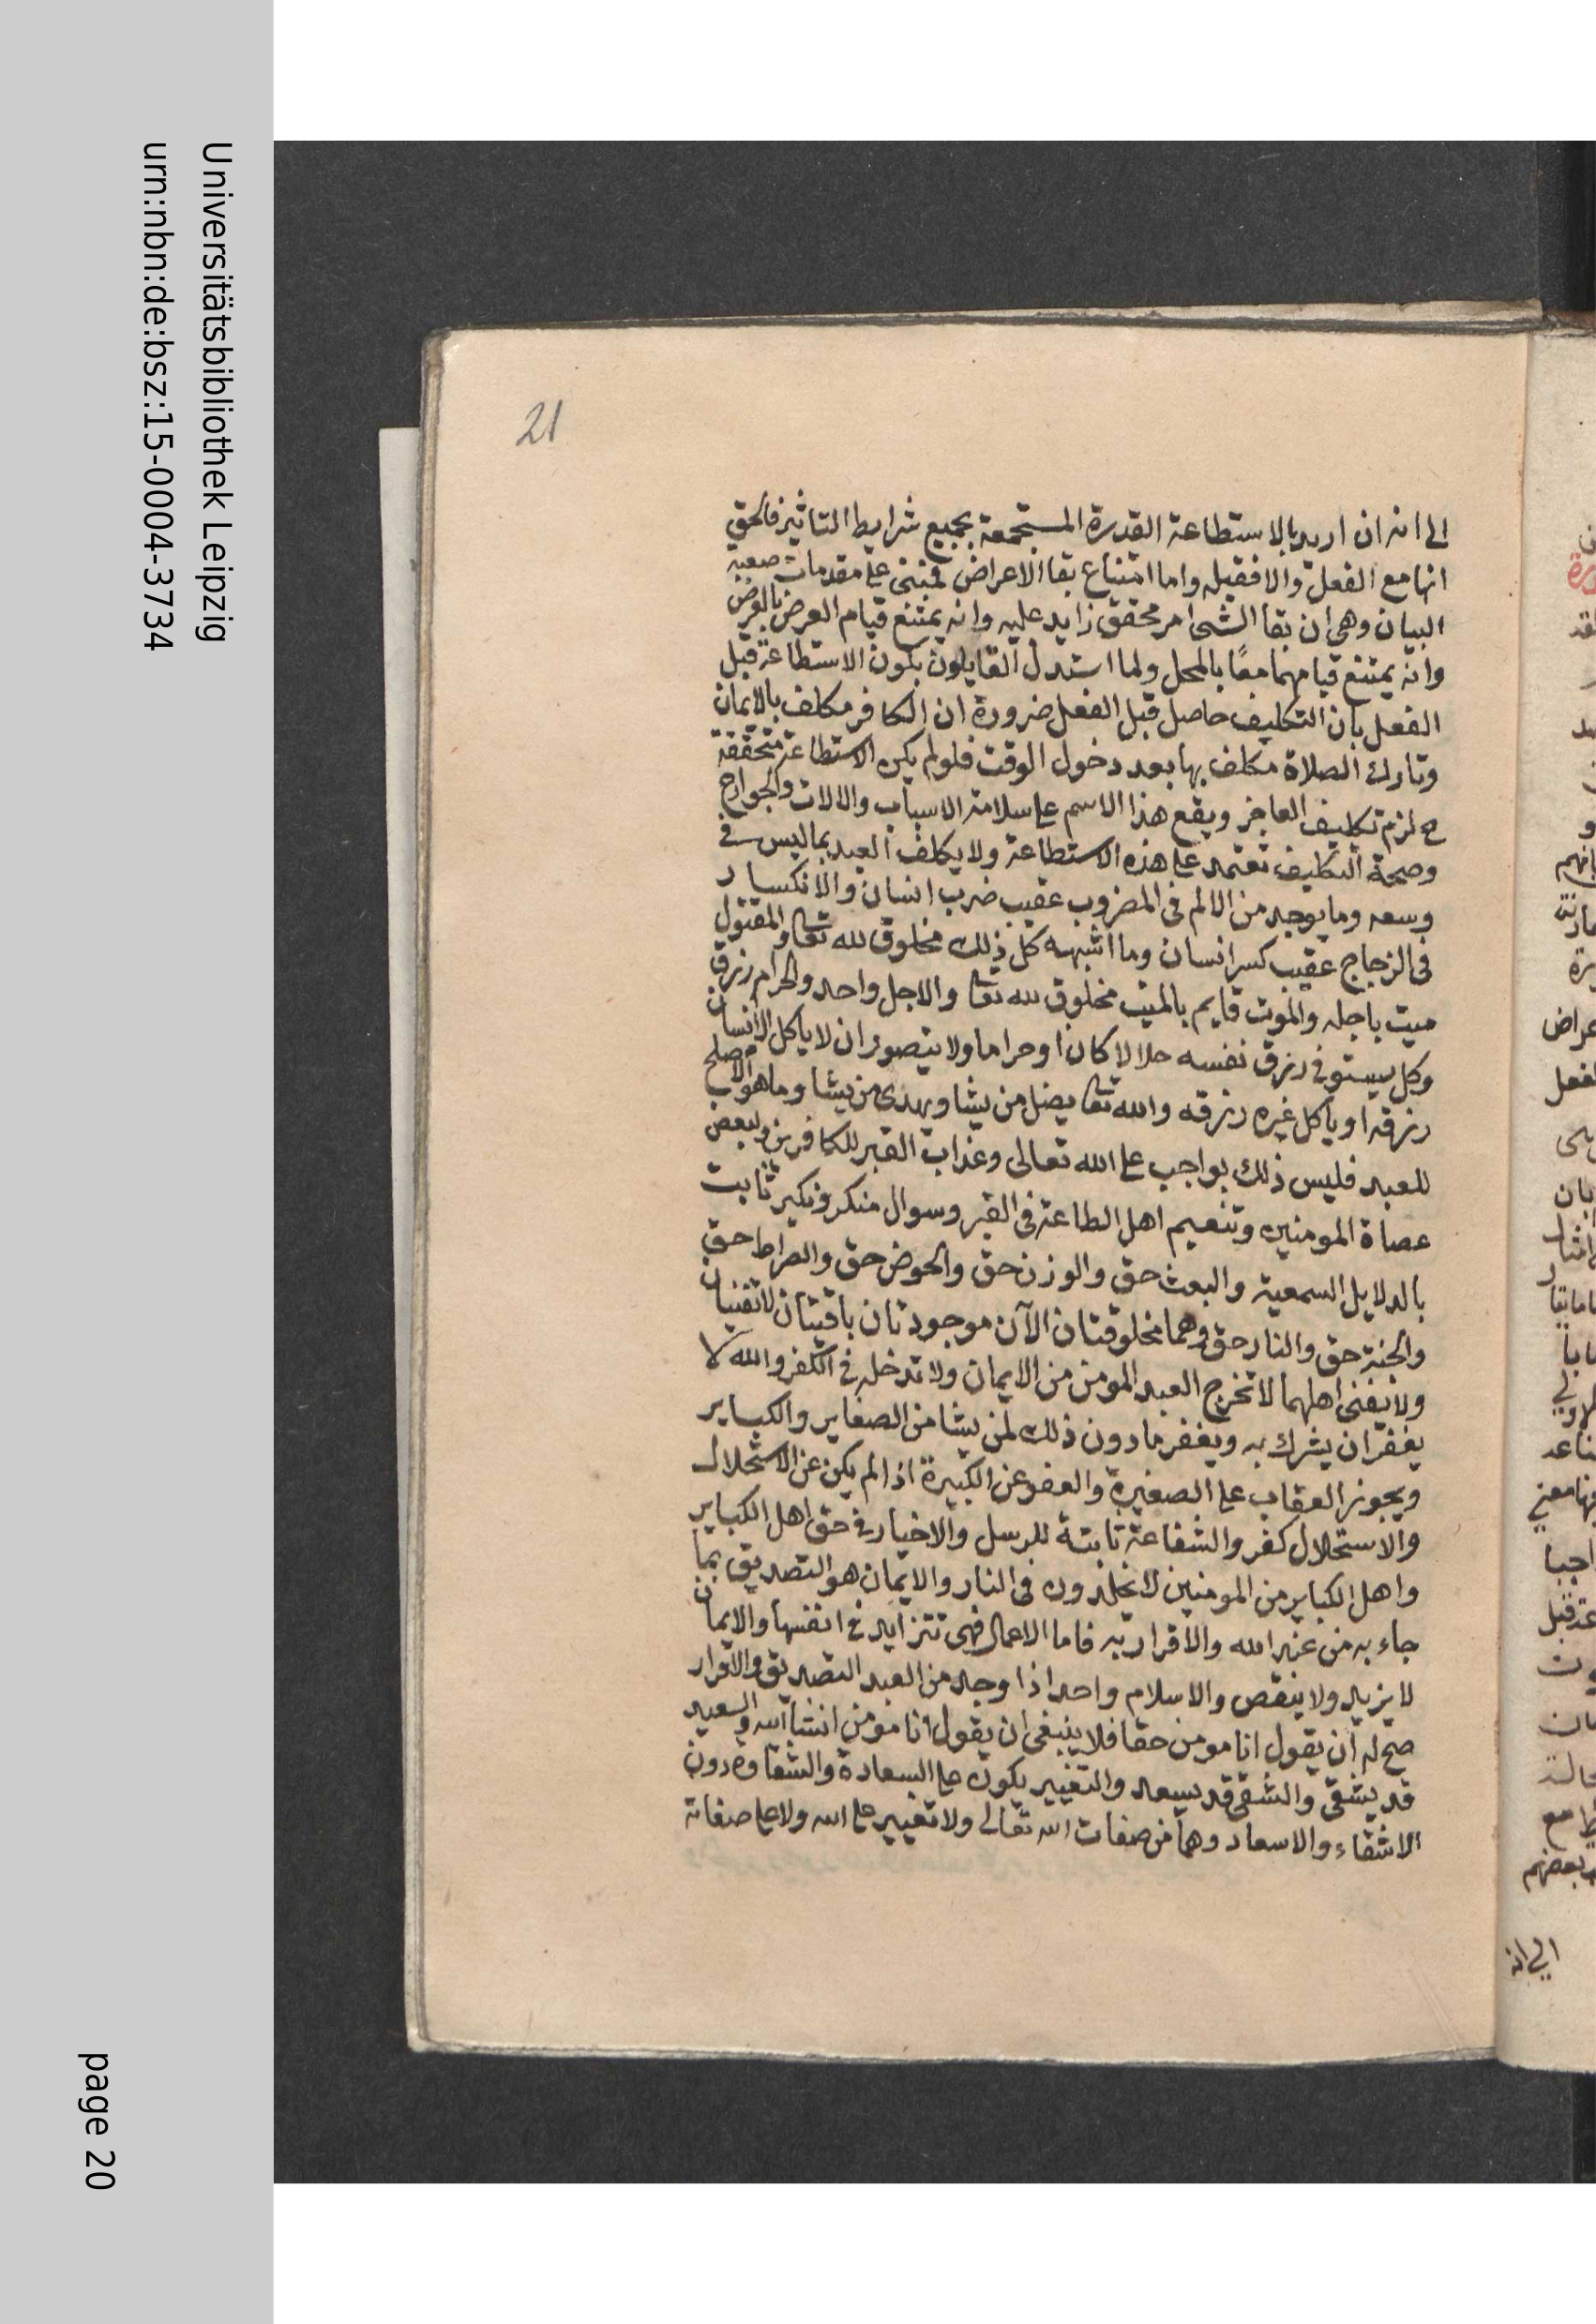 21
الى انه ان اريد بالاستطاعة القدرة المستجمعة بجميع شرايط التاثير فالحق
انها مع الفعل والا فقبله واما امتناع بقا الاعراض فمبنى على مقدمات صعبة
البيان وهى ان بقا الشى امر محقق زايد عليه وانه يمتنع قيام العرض بالعرض
وانه يمتنع قيامهما معًا بالمحل ولما استدل القايلون بكون الاستطاعة قبل
الفعل بان التكليف حاصل قبل الفعل ضرورة ان الكافر مكلف بالايمان
وتارك الصلاة مكلف بها بعد دخول الوقت فلو لم يكن الاستطاعة متحققة
ح لزم تكليف العاجز ويقع هذا الاسم على سلامة الاسباب والالات والجوارح
وصحة التكليف تعتمد على هذه الاستطاعة ولا يكلف العبد بما ليس فى
وسعه وما يوجد من الالم فى المضروب عقيب ضرب انسان والانكسار
فى الزجاج عقيب كسر انسان وما اشبهه كل ذلك مخلوق لله تعا والمقتول
ميت باجله والموت قايم بالميت مخلوق لله تعا والاجل واحد والحرام رزق
وكل يستوفى رزق نفسه حلالا كان او حراما ولا يتصور ان لا ياكل الانسان
رزقه او ياكل غيره رزقه والله تعا يضل من يشا ويهدى من يشا وما هو الاصلح
للعبد فليس ذلك بواجب على الله تعالى وعذاب القبر للكافرين ولبعض
عصاة المومنين وتنعيم اهل الطاعة فى القبر وسوال منكر ونكير ثابت
بالدلايل السمعية والبعث حق والوزن حق والحوض حق والصراط حق
والجنة حق والنار حق وهما مخلوقتان الآن موجودتان باقيتان لا تفنيان
ولا يفنى اهلهما لا تخرج العبد المومن من الايمان ولا تدخله فى الكفر والله لا
يغفر ان يشرك به ويغفر ما دون ذلك لمن يشا من الصغاير والكباير
ويجوز العقاب على الصغيرة والعفو عن الكبيرة اذا لم يكن عن الاستحلال
والاستحلال كفر والشفاعة ثابتة للرسل والاخيار فى حق اهل الكباير
واهل الكباير من المومنين لا يخلدون فى النار والايمان هو التصديق بما
جاء به من عند الله والاقرار به فاما الاعمال فهى تتزايد فى انفسها والايمان
لا يزيد ولا ينقص والاسلام واحد اذا وجد من العبد التصديق والاقرار
صح له ان يقول انا مومن حقا فلا ينبغى ان يقول انا مومن انشا الله والسعيد
قد يشقى والشقى قد يسعد والتغيير يكون على السعادة والشقاوة دون
الاشقاء والاسعاد وهما من صفات الله تعالى ولا تغيير على الله ولا على صفاته
الى انه
Universitätsbibliothek Leipzig
urn:nbn:de:bsz:15-0004-3734
page 20